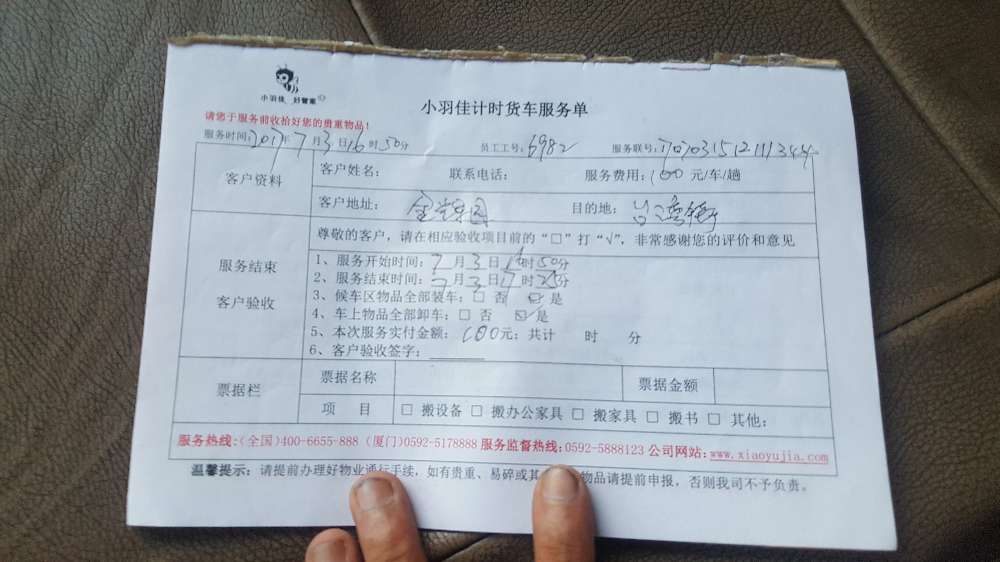 小羽佳 好管家
小羽佳计时货车服务单
请您于服务前收拾好您的贵重物品!
服务时间:2017年7月3日16时50分 员工工号:6982 服务联号:
客户资料 客户姓名: 联系电话: 服务费用:100元/车/趟
客户地址: 目的地:
尊敬的客户,请在相应验收项目前的“□”打“√”,非常感谢您的评价和意见
服务结束
客户验收
1、服务开始时间:7月3日16时50分
2、服务结束时间:7月3日17时25分
3、候车区物品全部装车:□ 否 ☑ 是
4、车上物品全部卸车:□ 否 ☑ 是
5、本次服务实付金额:100元;共计 时 分
6、客户验收签字:
票据栏 票据名称 票据金额
项 目 □ 搬设备 □ 搬办公家具 □ 搬家具 □ 搬书 □ 其他:
服务热线:(全国)400-6655-888 (厦门)0592-5178888 服务监督热线:0592-5888123 公司网站:www.xiaoyujia.com
温馨提示:请提前办理好物业通行手续,如有贵重、易碎或其 物品请提前申报,否则我司不予负责。